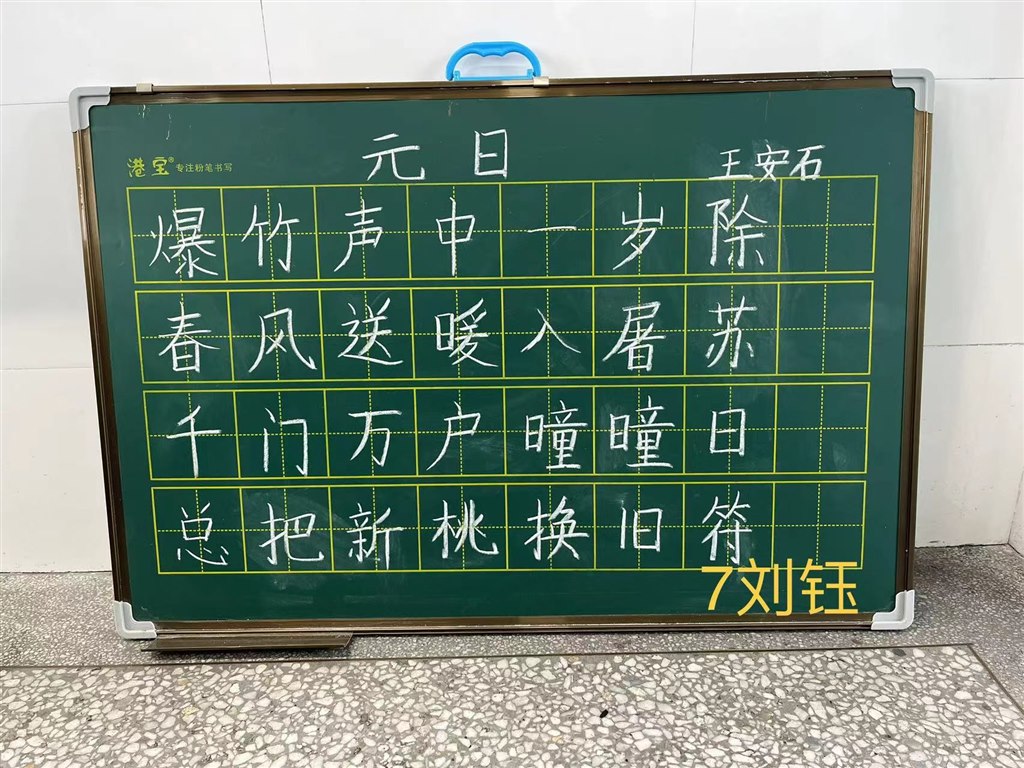 元日
港宝® 专注粉笔书写
王安石
爆竹声中一岁除
春风送暖入屠苏
千门万户曈曈日
总把新桃换旧符
7刘钰